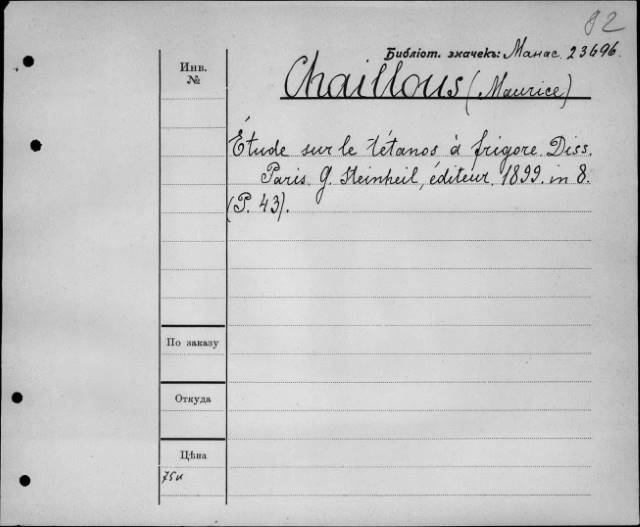 82
Библіот. значекъ: Манас. 23696.
Инв.
№
Chaillous (Maurice)
Étude sur le tétanos à frigore. Diss.
Paris. G. Steinheil, éditeur, 1899. in 8.
(P. 43).
По заказу
Откуда
Цѣна
75к